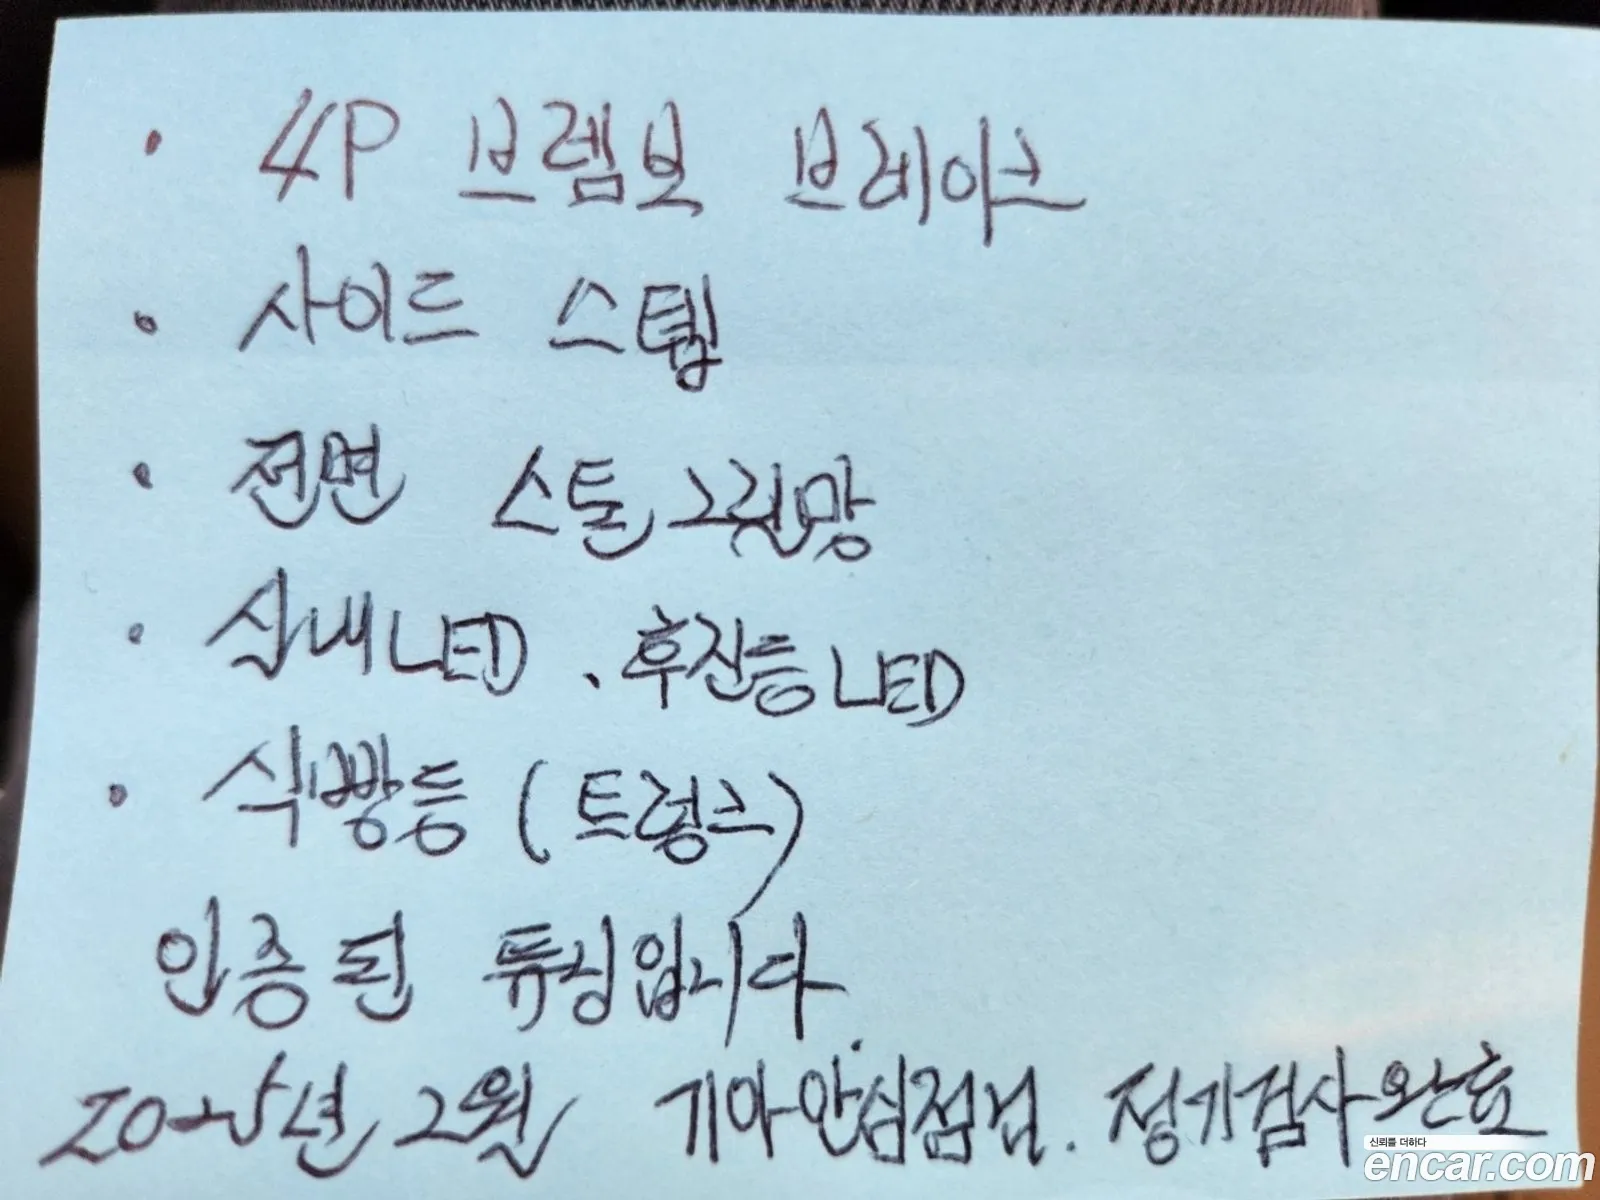 · 4P 브렘보 브레이크
· 사이드 스텝
· 전면 스톨그릴망
· 실내LED、후진등LED
· 식빵등 (트렁크)
인증된 튜닝입니다.
2025년 2월 기아안심점검. 정기검사완료
신뢰를 더하다
encar.com